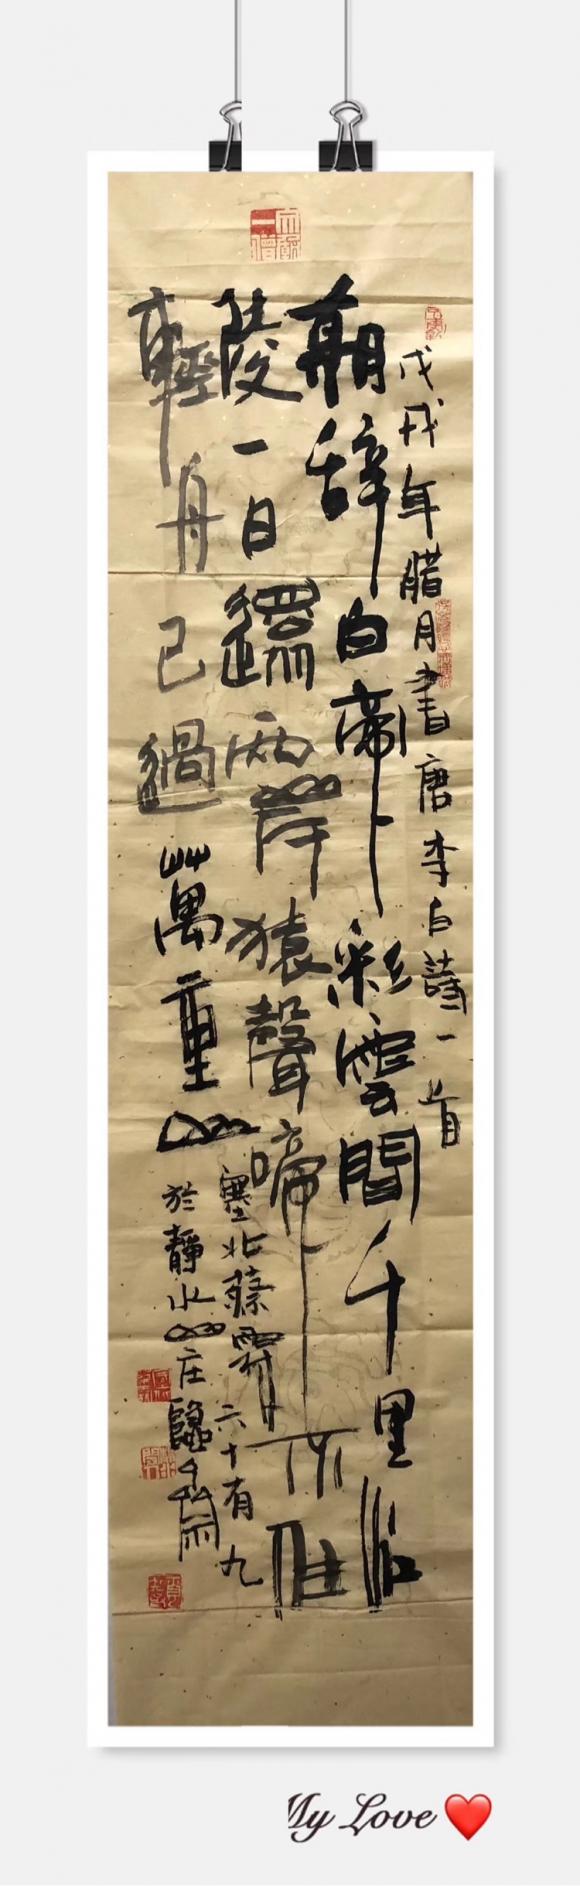 戊戌年腊月書唐李白詩一首
朝辞白帝彩雲間千里江
陵一日還兩岸猿聲啼不住
輕舟已過萬重山
塞北 六十有九
於靜水山庄
My Love